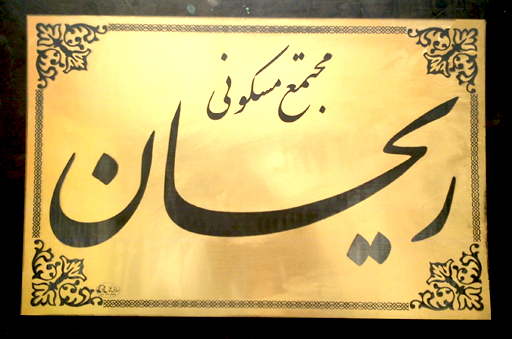 مجتمع مسکونی
ریحان